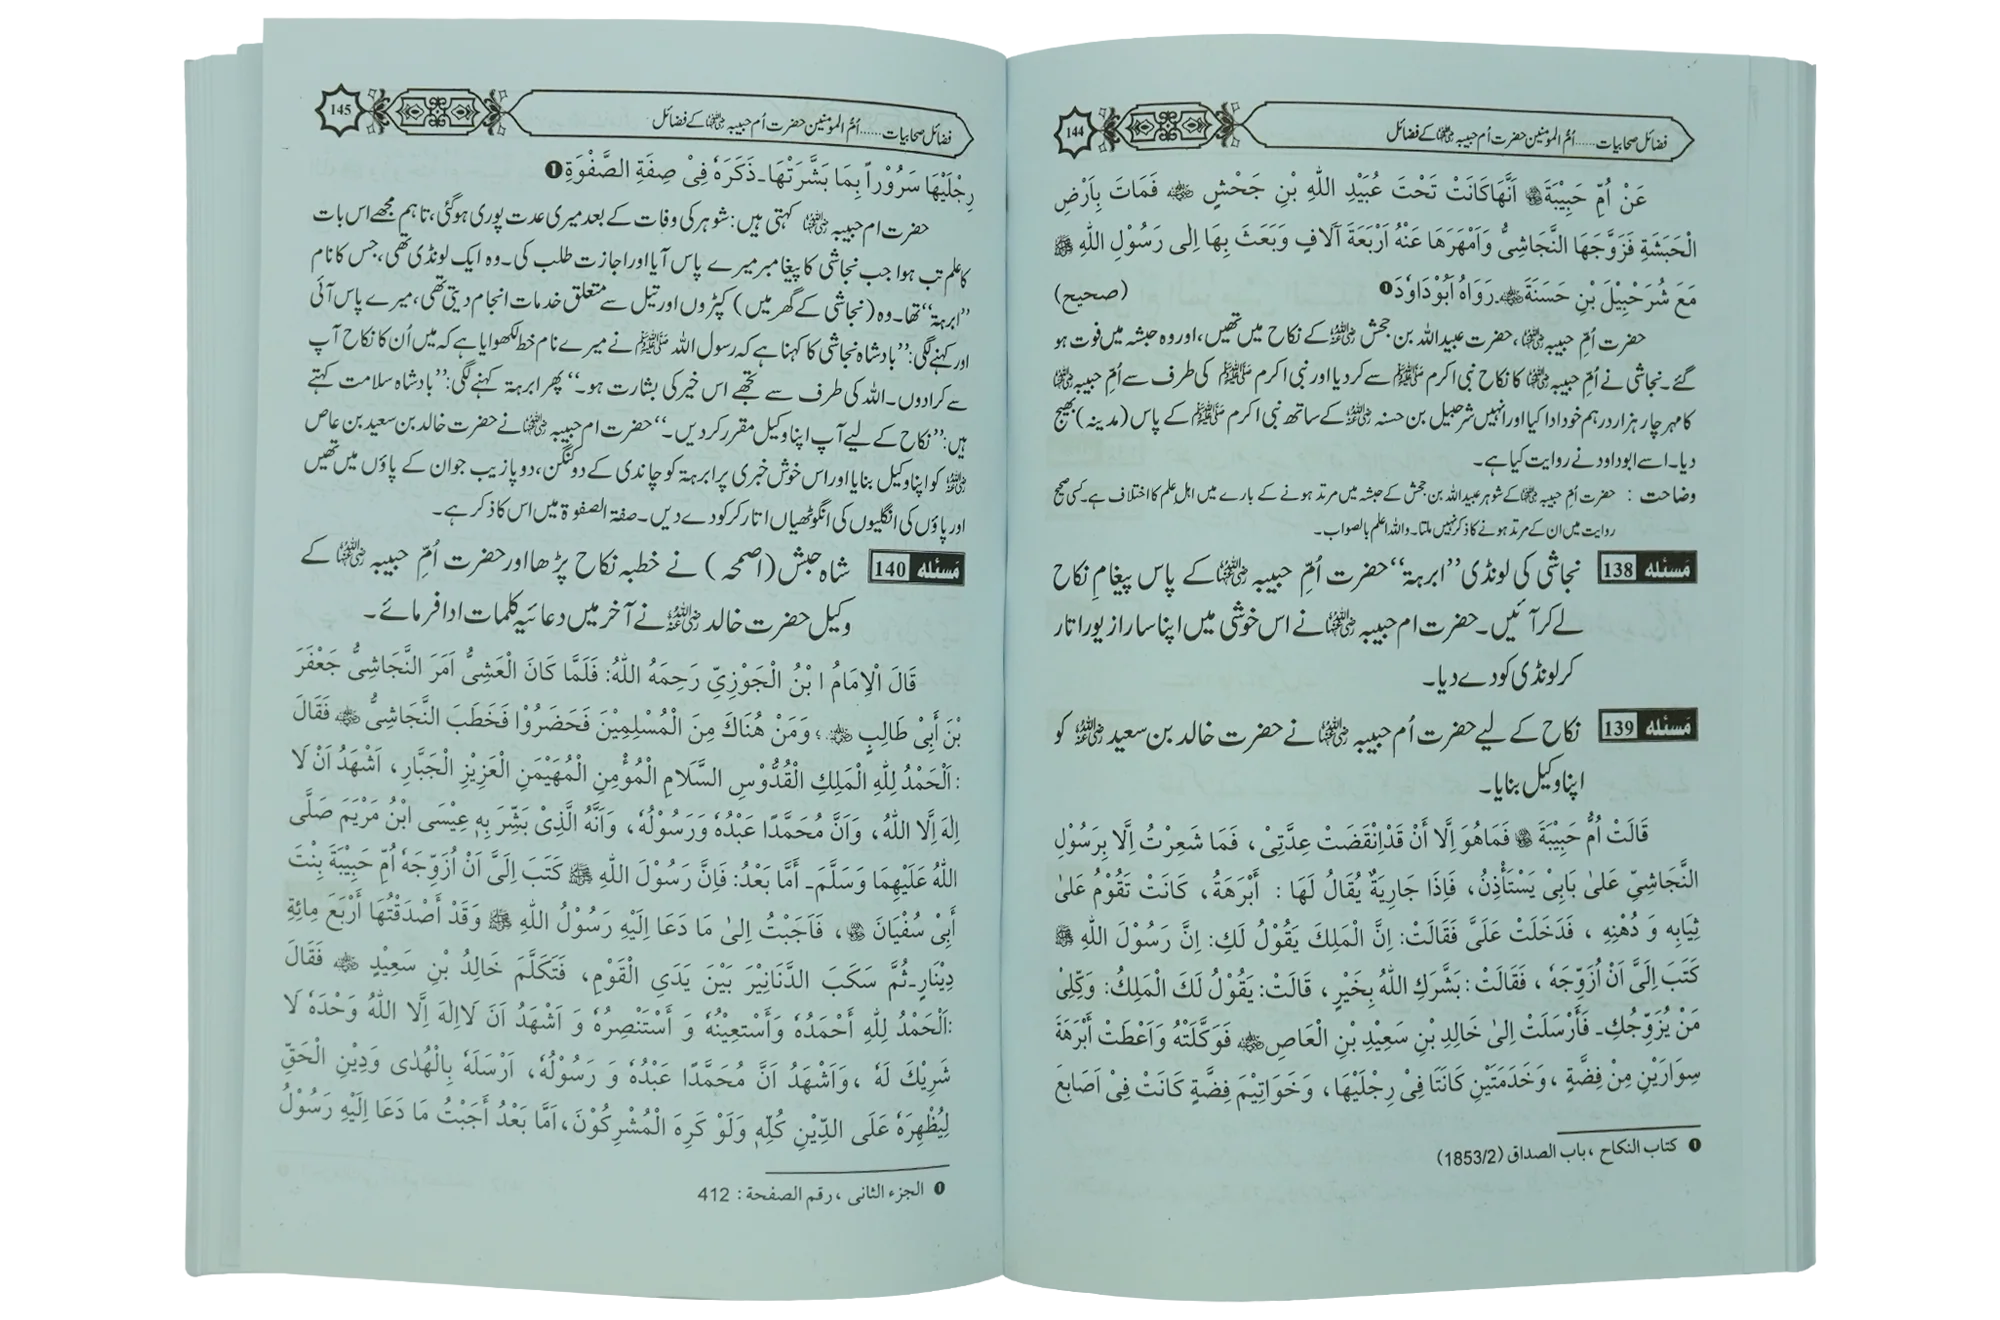 144
فضائل صحابیات ...... اُمُّ المؤمنین حضرت اُم حبیبہ رضی اللہ عنہا کے فضائل
عَنْ اُمِّ حَبِيْبَةَ رضی اللہ عنہا اَنَّهَا كَانَتْ تَحْتَ عُبَيْدِ اللّٰهِ بْنِ جَحْشٍ رضی اللہ عنہ فَمَاتَ بِاَرْضِ
الْحَبَشَةِ فَزَوَّجَهَا النَّجَاشِىُّ وَاَمْهَرَهَا عَنْهُ اَرْبَعَةَ آلَافٍ وَبَعَثَ بِهَا اِلٰى رَسُوْلِ اللّٰهِ ﷺ
مَعَ شُرَحْبِيْلَ بْنِ حَسَنَةَ رضی اللہ عنہ۔ رَوَاهُ اَبُوْدَاوٗدَ❶ (صحیح)
حضرت اُمِّ حبیبہ رضی اللہ عنہا، حضرت عبید اللہ بن جحش رضی اللہ عنہ کے نکاح میں تھیں، اور وہ حبشہ میں فوت ہو
گئے۔ نجاشی نے اُمِّ حبیبہ رضی اللہ عنہا کا نکاح نبی اکرم ﷺ سے کردیا اور نبی اکرم ﷺ کی طرف سے اُمِّ حبیبہ رضی اللہ عنہا
کا مہر چار ہزار درہم خود ادا کیا اور انہیں شرحبیل بن حسنہ رضی اللہ عنہ کے ساتھ نبی اکرم ﷺ کے پاس (مدینہ) بھیج
دیا۔ اسے ابوداود نے روایت کیا ہے۔
وضاحت : حضرت اُمِّ حبیبہ رضی اللہ عنہا کے شوہر عبید اللہ بن جحش کے حبشہ میں مرتد ہونے کے بارے میں اہل علم کا اختلاف ہے۔ کسی صحیح
روایت میں ان کے مرتد ہونے کا ذکر نہیں ملتا۔ واللہ اعلم بالصواب۔
مَسئله 138 نجاشی کی لونڈی "ابرھۃ" حضرت اُمِّ حبیبہ رضی اللہ عنہا کے پاس پیغامِ نکاح
لے کر آئیں۔ حضرت ام حبیبہ رضی اللہ عنہا نے اس خوشی میں اپنا سارا زیور اتار
کر لونڈی کو دے دیا۔
مَسئله 139 نکاح کے لیے حضرت اُم حبیبہ رضی اللہ عنہا نے حضرت خالد بن سعید رضی اللہ عنہ کو
اپنا وکیل بنایا۔
قَالَتْ اُمُّ حَبِيْبَةَ رضی اللہ عنہا فَمَاهُوَ اِلَّا أَنْ قَدْاِنْقَضَتْ عِدَّتِىْ، فَمَا شَعِرْتُ اِلَّا بِرَسُوْلِ
النَّجَاشِىِّ عَلىٰ بَابِىْ يَسْتَأْذِنُ، فَاِذَا جَارِيَةٌ يُقَالُ لَهَا : أَبْرَهَةُ، كَانَتْ تَقُوْمُ عَلىٰ
ثِيَابِهِ وَ دُهْنِهِ ، فَدَخَلَتْ عَلَىَّ فَقَالَتْ: اِنَّ الْمَلِكَ يَقُوْلُ لَكِ: اِنَّ رَسُوْلَ اللّٰهِ ﷺ
كَتَبَ اِلَىَّ اَنْ اُزَوِّجَهٗ ، فَقَالَتْ: بَشَّرَكِ اللّٰهُ بِخَيْرٍ ، قَالَتْ: يَقُوْلُ لَكَ الْمَلِكُ: وَكِّلِىْ
مَنْ يُزَوِّجُكِ۔ فَأَرْسَلَتْ اِلىٰ خَالِدِ بْنِ سَعِيْدِ بْنِ الْعَاصِ رضی اللہ عنہ فَوَكَّلَتْهُ وَاَعْطَتْ أَبْرَهَةَ
سِوَارَيْنِ مِنْ فِضَّةٍ ، وَخَدَمَتَيْنِ كَانَتَا فِىْ رِجْلَيْهَا، وَخَوَاتِيْمَ فِضَّةٍ كَانَتْ فِىْ اَصَابِعَ
❶ کتاب النکاح ، باب الصداق (1853/2)
145
فضائل صحابیات ...... اُمُّ المؤمنین حضرت اُم حبیبہ رضی اللہ عنہا کے فضائل
رِجْلَيْهَا سَرُوْراً بِمَا بَشَّرَتْهَا۔ ذَكَرَهٗ فِىْ صِفَةِ الصَّفْوَةِ❶
حضرت ام حبیبہ رضی اللہ عنہا کہتی ہیں: شوہر کی وفات کے بعد میری عدت پوری ہوگئی، تاہم مجھے اس بات
کا علم تب ہوا جب نجاشی کا پیغامبر میرے پاس آیا اور اجازت طلب کی۔ وہ ایک لونڈی تھی، جس کا نام
"ابرہۃ" تھا۔ وہ (نجاشی کے گھر میں) کپڑوں اور تیل سے متعلق خدمات انجام دیتی تھی، میرے پاس آئی
اور کہنے لگی: "بادشاہ نجاشی کا کہنا ہے کہ رسول اللہ ﷺ نے میرے نام خط لکھوایا ہے کہ میں اُن کا نکاح آپ
سے کرادوں۔ اللہ کی طرف سے تجھے اس خیر کی بشارت ہو۔" پھر ابرہۃ کہنے لگی: "بادشاہ سلامت کہتے
ہیں: "نکاح کے لیے آپ اپنا وکیل مقرر کردیں۔" حضرت ام حبیبہ رضی اللہ عنہا نے حضرت خالد بن سعید بن عاص
رضی اللہ عنہ کو اپنا وکیل بنایا اور اس خوش خبری پر ابرہۃ کو چاندی کے دو کنگن، دو پازیب جو ان کے پاؤں میں تھیں
اور پاؤں کی انگلیوں کی انگوٹھیاں اتار کر کو دے دیں۔ صفۃ الصفوۃ میں اس کا ذکر ہے۔
مَسئله 140 شاہ حبش (اصمحہ) نے خطبہ نکاح پڑھا اور حضرت اُمِّ حبیبہ رضی اللہ عنہا کے
وکیل حضرت خالد رضی اللہ عنہ نے آخر میں دعائیہ کلمات ادا فرمائے۔
قَالَ الْاِمَامُ ا بْنُ الْجَوْزِىِّ رَحِمَهُ اللّٰهُ: فَلَمَّا كَانَ الْعَشِىُّ اَمَرَ النَّجَاشِىُّ جَعْفَرَ
بْنَ أَبِىْ طَالِبٍ رضی اللہ عنہ ، وَمَنْ هُنَاكَ مِنَ الْمُسْلِمِيْنَ فَحَضَرُوْا فَخَطَبَ النَّجَاشِىُّ رضی اللہ عنہ فَقَالَ
:اَلْحَمْدُ لِلّٰهِ الْمَلِكِ الْقُدُّوْسِ السَّلَامِ الْمُؤْمِنِ الْمُهَيْمَنِ الْعَزِيْزِ الْجَبَّارِ، اَشْهَدُ اَنْ لَا
اِلٰهَ اِلَّا اللّٰهُ، وَاَنَّ مُحَمَّدًا عَبْدُهٗ وَرَسُوْلُهٗ، وَاَنَّهُ الَّذِىْ بَشَّرَ بِهٖ عِيْسَى ابْنُ مَرْيَمَ صَلَّى
اللّٰهُ عَلَيْهِمَا وَسَلَّمَ۔ أَمَّا بَعْدُ: فَاِنَّ رَسُوْلَ اللّٰهِ ﷺ كَتَبَ اِلَىَّ اَنْ اُزَوِّجَهٗ اُمَّ حَبِيْبَةَ بِنْتَ
أَبِىْ سُفْيَانَ رضی اللہ عنہا ، فَاَجَبْتُ اِلىٰ مَا دَعَا اِلَيْهِ رَسُوْلُ اللّٰهِ ﷺ وَقَدْ أَصْدَقْتُهَا أَرْبَعَ مِائِةِ
دِيْنَارٍ۔ ثُمَّ سَكَبَ الدَّنَانِيْرَ بَيْنَ يَدَىِ الْقَوْمِ، فَتَكَلَّمَ خَالِدُ بْنِ سَعِيْدٍ رضی اللہ عنہ فَقَالَ
:اَلْحَمْدُ لِلّٰهِ أَحْمَدُهٗ وَأَسْتَعِيْنُهٗ وَ أَسْتَنْصِرُهٗ وَ اَشْهَدُ اَنَ لَااِلٰهَ اِلَّا اللّٰهُ وَحْدَهٗ لَا
شَرِيْكَ لَهٗ ، وَاَشْهَدُ اَنَّ مُحَمَّدًا عَبْدُهٗ وَ رَسُوْلُهٗ، اَرْسَلَهٗ بِالْهُدٰى وَدِيْنِ الْحَقِّ
لِيُظْهِرَهٗ عَلَى الدِّيْنِ كُلِّهٖ وَلَوْ كَرِهَ الْمُشْرِكُوْنَ، اَمَّا بَعْدُ أَجَبْتُ مَا دَعَا اِلَيْهِ رَسُوْلُ
❶ الجزء الثانی ، رقم الصفحة : 412